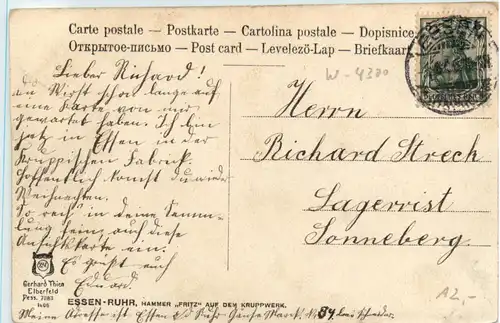 Carte postale – Postkarte – Cartolina postale – Dopisnice
Открытое-письмо – Post card – Levelező-Lap – Briefkaart
ESSEN
W-4330
Lieber Richard!
Du wirst schon lange auf
eine Karte von mir
gewartet haben. Ich bin
jetzt in Essen in der
Kruppischen Fabrik.
Hoffentlich kommst du wieder
Weihnachten.
So reih in deine Samm-
lung ein, auf diese
Ansichtkarte ein.
Es grüßt auch
Eduard.
Herrn
Richard Strech
Lagerrist
Sonneberg
Gerhard Thien
Elberfeld
Dess. 7083
A2,-
ESSEN-RUHR, HAMMER „FRITZ" AUF DEM KRUPPWERK.
Meine Adresse ist Essen a/d Ruhr 84.